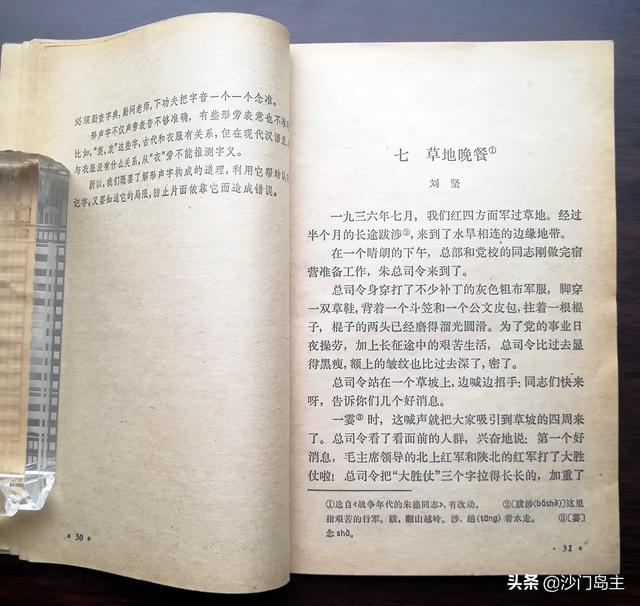 必须勤查字典，勤问老师，下功夫把字音一个一个念准。
形声字不仅声旁表音不够准确，有些形旁表意也不
比如，“衷、哀”这些字，古代和衣服有关系，但在现代汉语里，
与衣服没有什么关系，从“衣”旁不能推测字义。
所以，我们既要了解形声字构成的道理，利用它帮助认
记字，又要知道它的局限，防止片面依靠它而造成错误。
· 30 ·
七 草地晚餐①
刘 坚
一九三六年七月，我们红四方面军过草地。经过
半个月的长途跋涉②，来到了水旱相连的边缘地带。
在一个晴朗的下午，总部和党校的同志刚做完宿
营准备工作，朱总司令来到了。
总司令身穿打了不少补丁的灰色粗布军服，脚穿
一双草鞋，背着一个斗笠和一个公文皮包，拄着一根棍
子，棍子的两头已经磨得溜光圆滑。为了党的事业日
夜操劳，加上长征途中的艰苦生活，总司令比过去显
得黑瘦，额上的皱纹也比过去深了，密了。
总司令站在一个草坡上，边喊边招手：同志们快来
呀，告诉你们几个好消息。
一霎③时，这喊声就把大家吸引到草坡的四周来
了。总司令看了看面前的人群，兴奋地说：第一个好
消息，毛主席领导的北上红军和陕北的红军打了大胜
仗啦！总司令把“大胜仗”三个字拉得长长的，加重了
①选自《战争年代的朱德同志》，有改动。 ②〔跋涉(báshè)〕这里
指艰苦的行军。跋，翻山越岭。涉，趟(tāng)着水走。 ③〔霎〕
念shà。
· 31 ·
头条 @沙门岛主